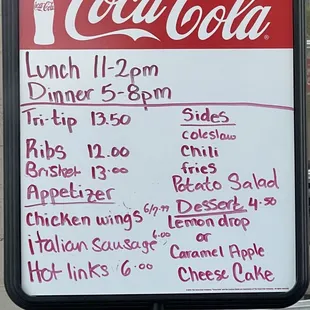 Coca-Cola
Coca-Cola
Lunch 11-2pm
Dinner 5-8pm
Tri-tip 13.50
Ribs 12.00
Brisket 13.00
Appetizer
Chicken wings 6/7.99
italian Sausage 6.00
Hot links 6.00
Sides
coleslaw
Chili
fries
Potato Salad
Dessert 4.50
Lemon drop
or
Caramel Apple
Cheese Cake